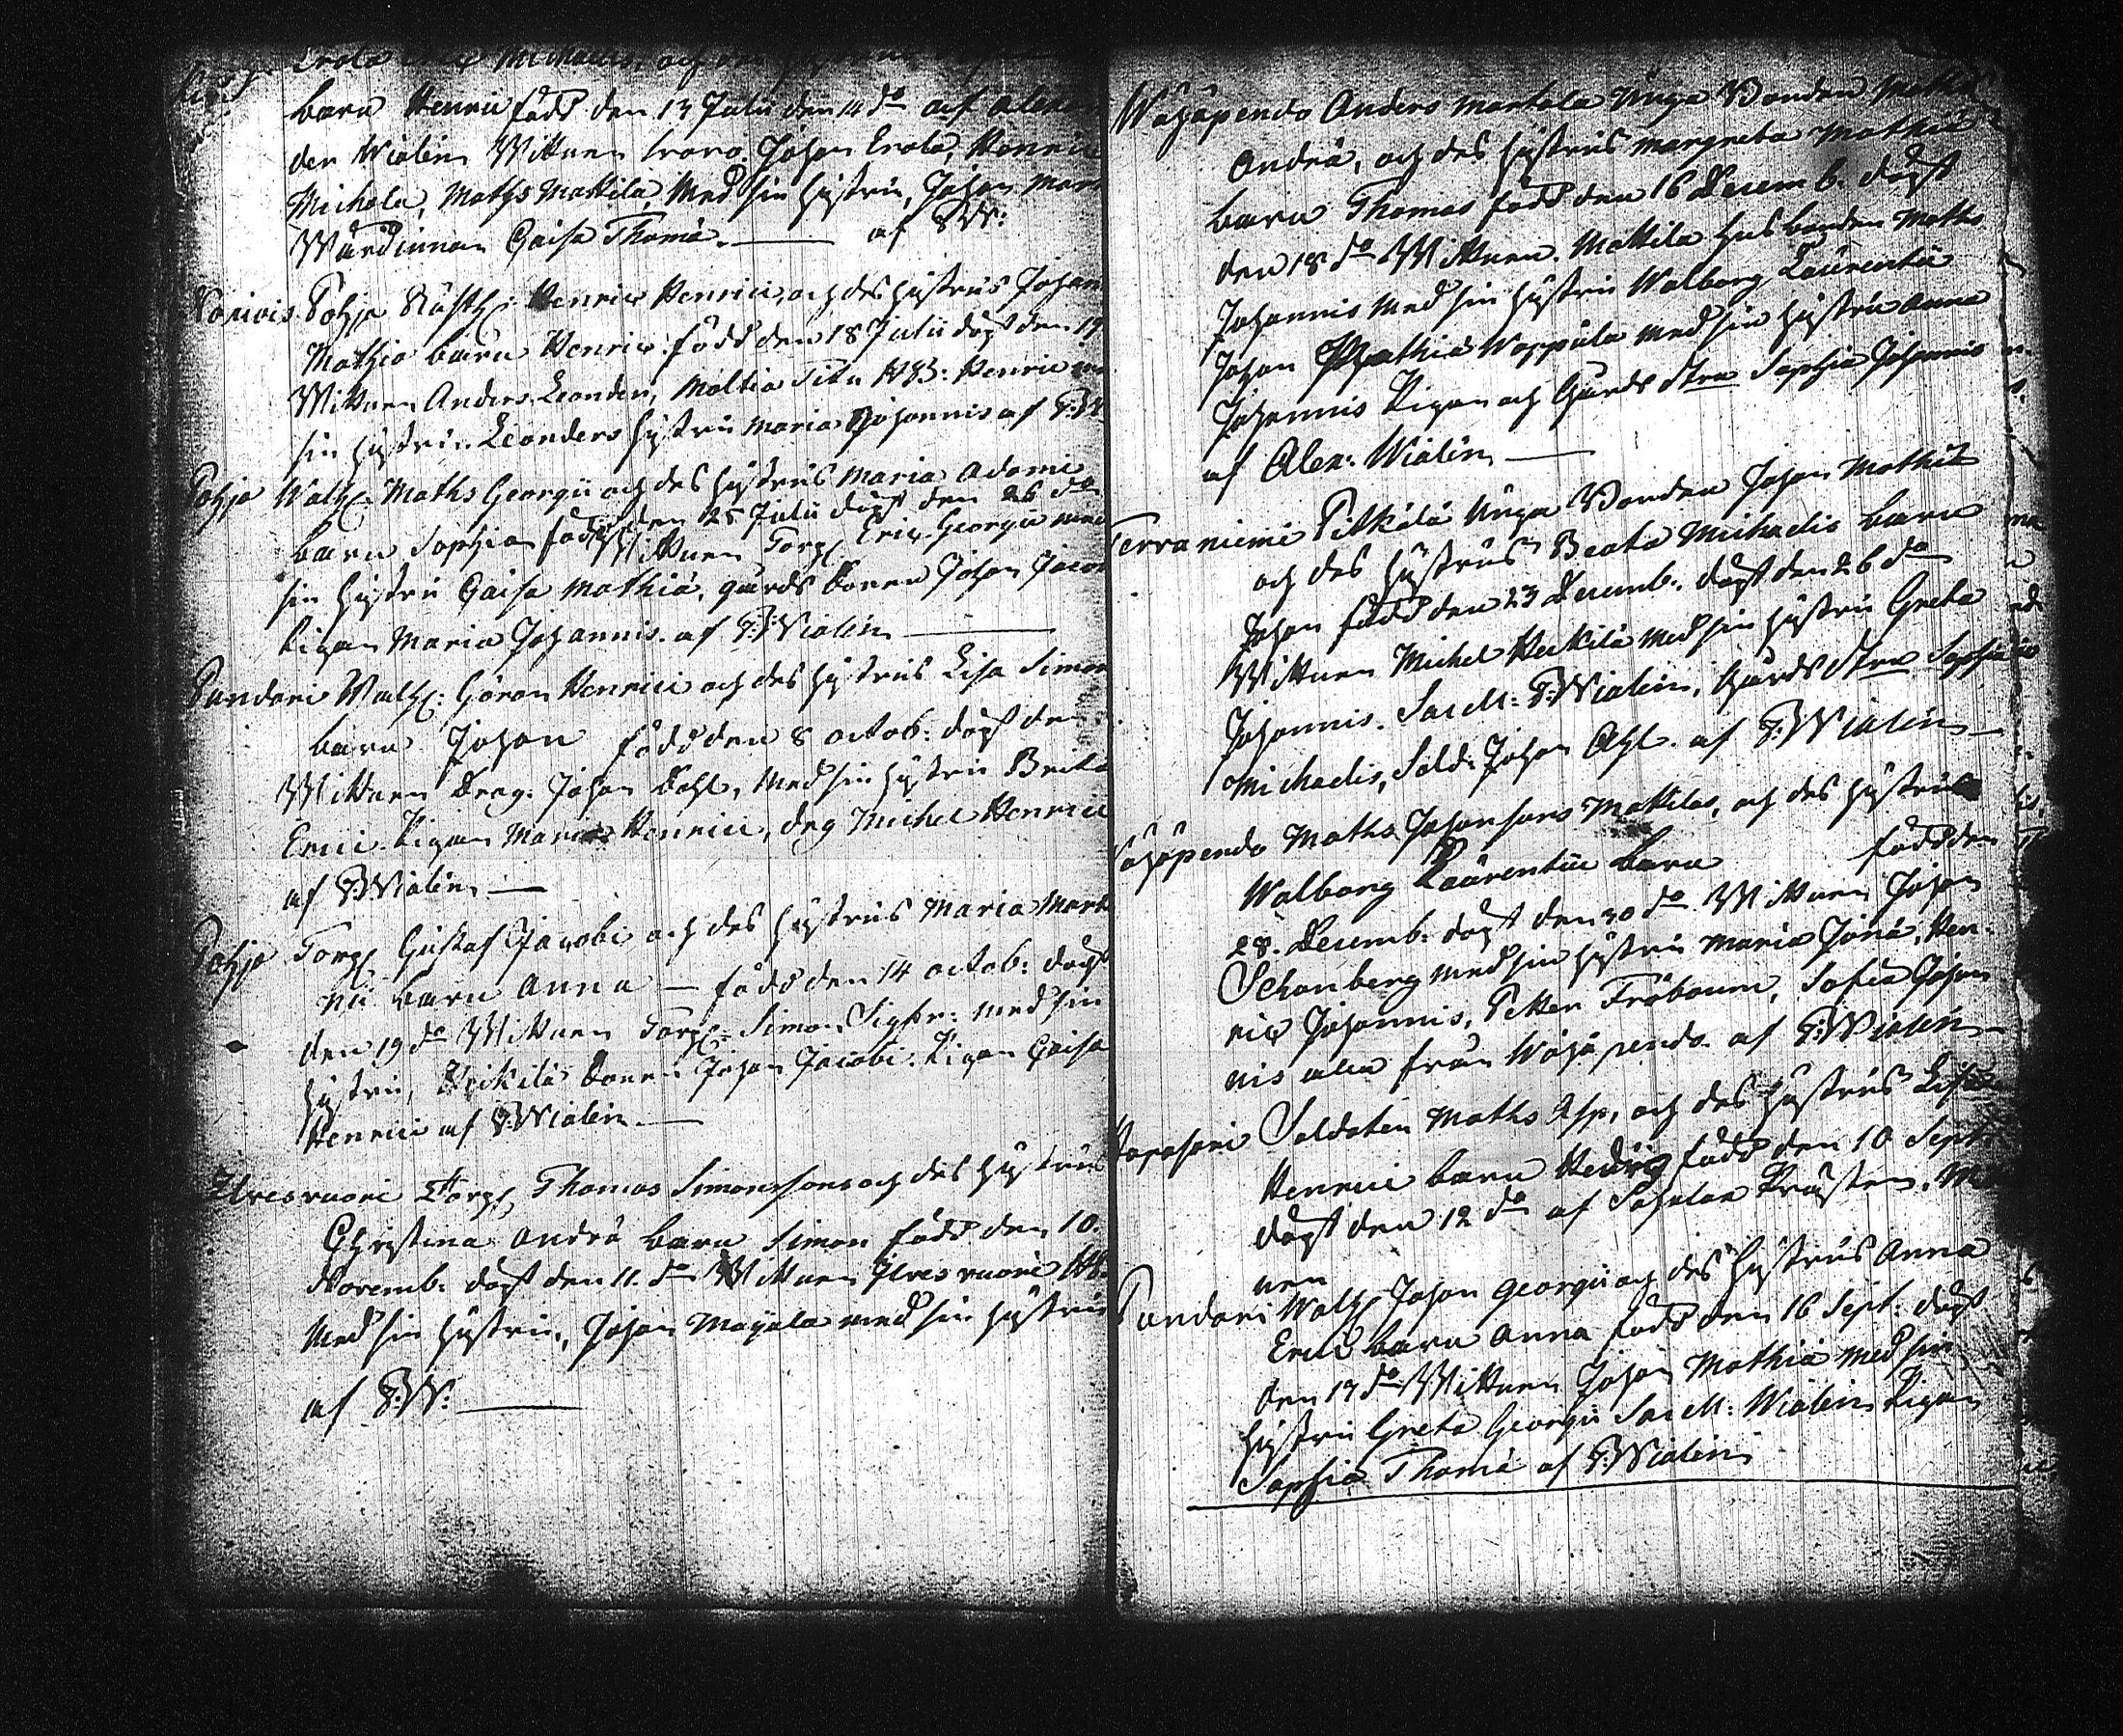 Erola Eric Michaelis, och des hustrus
barn Henric född den 13 Julii den 14 do af Alexan
der Wialén Wittnen woro. Johan Erola, Henric
Michola, Maths Mattila, Med sin hustru, Johan
Wärdinnan Caisa Thomæ. — af T:W:
Pohja Henric Henrici, och des hustrus Johan
Mathiæ barn Henric född den 18 Julii döpt den 19
Wittnen Anders Leander, Henric
sin hustru. Leanders hustru Maria Johannis af T:W
Pohja Maths Georgii och des hustrus Maria Adami
barn Sophia född den 25 Julii döpt den 26 do
Wittnen Torp: Eric Georgii med
sin hustru Caisa Mathiæ, gårds Johan Jacob
Pigan Maria Johannis. af T:Wialén —
Sundari Göran Henrici och des hustrus Lisa Simon
barn Johan född den 8 octob: döpt den
Wittnen Drag: Johan Dahl, Med sin hustru Brita
Erici. Pigan Maria Henrici, drg Michel Henrici
af T:Wialén —
Pohja Torp: Gustaf Jacobi och des hustrus Maria Mart
ni barn Anna — född den 14 octob: döpt
den 19 do Wittnen Torp: Simon Sigfr: med sin
hustru, Heikilä Johan Jacobi. Pigan Caisa
Henrici af T:Wialén —
Ilvesvuori Torp: Thomas Simonsons och des hustrus
Christina Andræ barn Simon född den 10.
Novemb: döpt den 11. do Wittnen Ilvesvuori
Med sin hustru, Johan Mayala med sin hustru
af T:W: —
Wåhäpendo Anders Mantela Unga Bonden Mathias
Andræ, och des hustrus Margreta Mathiæ
barn Thomas född den 16 Decemb. döpt
den 18 do Wittnen. Mattila husbonden Maths
Johannis Med sin hustru Walborg Laurentii
Johan Mathiæ Wappula med sin hustru Anna
Johannis Pigan och Gårds Sophia Johannis
af Alex: Wialén —
Terraniemi Pitkälä Unga Bonden Johan Mathiæ
och des hustrus Beata Michaelis barn
Johan född den 23 Decemb: döpt den 26 do
Wittnen Michel Heikilä med sin hustru Greta
Johannis. T:Wialén, Gårds Sophia
Michaelis, Sold: Johan Ahl. af T:Wialén —
Wåhäpendo Maths Johansons Mattilas, och des hustrus
Walborg Laurentii barn född den
28. Decemb: döpt den 30 do. Wittnen Johan
Schonberg med sin hustru Maria Jonæ, Hen-
ric Johannis, Petter Fröbom, Sofia Johan
nis alla från Wåhäpendo. af T:Wialén —
Haposari Soldaten Maths Asp, och des hustrus Lisa
Henrici barn Hedvig född den 10 Sept:
döpt den 12 do af Sahalax Prästen.
nen
Sundari Johan Georgii och des hustrus Anna
Erici barn Anna född den 16 Sept: döpt
den 17 do Wittnen Johan Mathiæ med sin
hustru Greta Georgii Wialén Pigan
Sophia Thomæ af T:Wialén